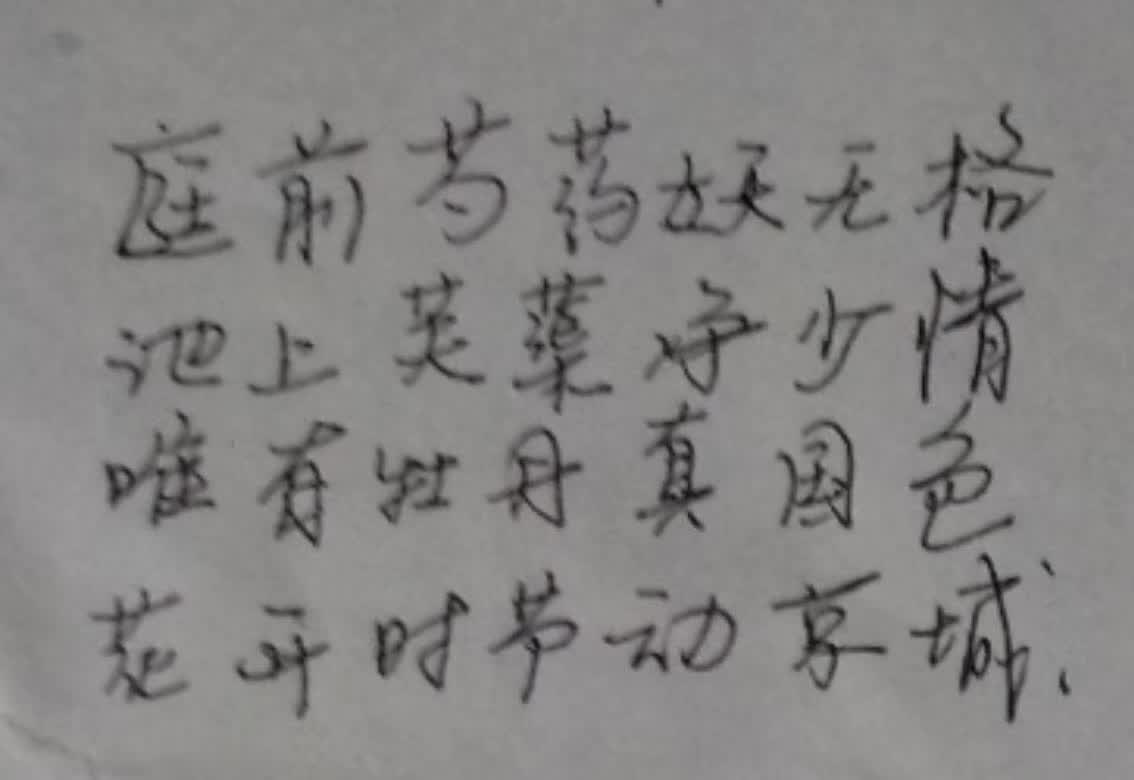 庭前芍药妖无格
池上芙蕖净少情
唯有牡丹真国色
花开时节动京城.